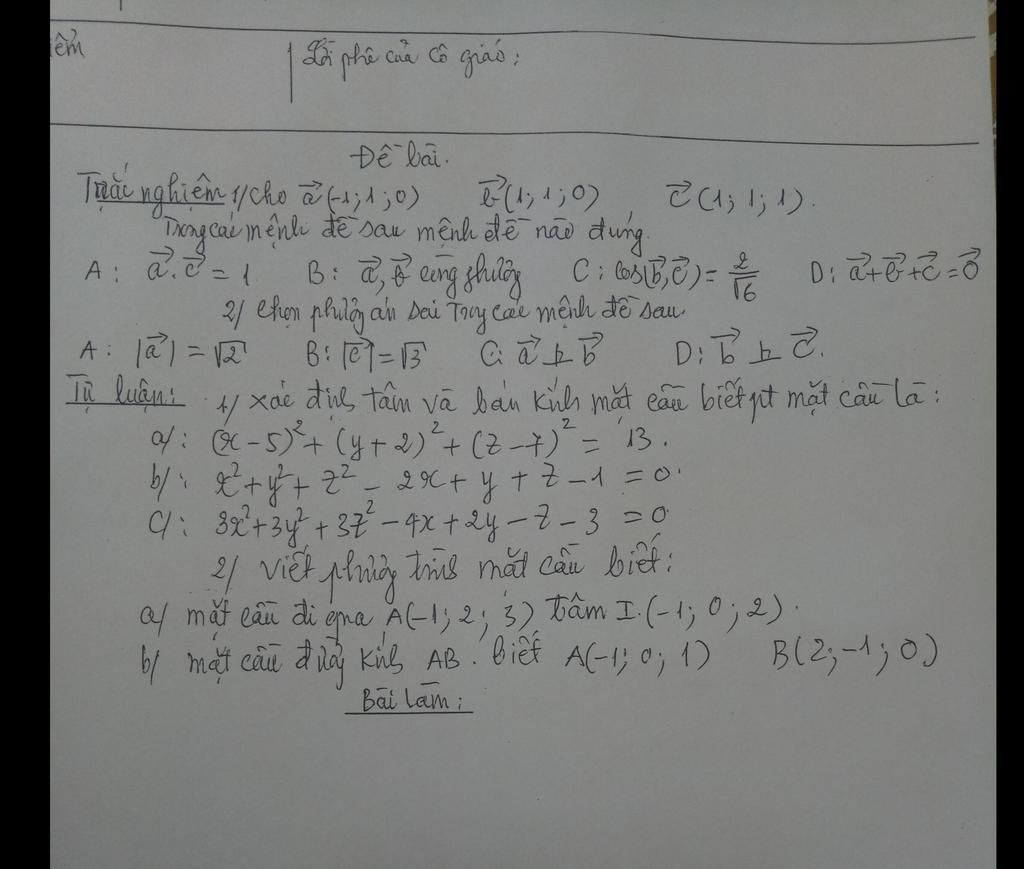 iểm
Lời phê của cô giáo:
Đề bài.
Trắc nghiệm 1/ cho a⃗(-1; 1; 0) b⃗(1; 1; 0) c⃗(1; 1; 1).
Trong các mệnh đề sau mệnh đề nào đúng.
A: a⃗.c⃗ = 1 B: a⃗, b⃗ cùng phương C: cos(b⃗,c⃗) = 2/√6 D: a⃗+b⃗+c⃗=0⃗
2/ Chọn phương án sai Trong các mệnh đề sau.
A: |a⃗| = √2 B: |c⃗| = √3 C: a⃗ ⊥ b⃗ D: b⃗ ⊥ c⃗.
Tự luận: 1/ Xác định tâm và bán kính mặt cầu biết pt mặt cầu là:
a/: (x-5)² + (y+2)² + (z-7)² = 13.
b/: x²+y²+z² - 2x + y + z - 1 = 0.
c/: 3x²+3y²+3z² - 4x + 2y - z - 3 = 0
2/ Viết phương trình mặt cầu biết:
a/ mặt cầu đi qua A(-1; 2; 3) tâm I.(-1; 0; 2).
b/ mặt cầu đường kính AB. biết A(-1; 0; 1) B(2; -1; 0)
Bài làm: